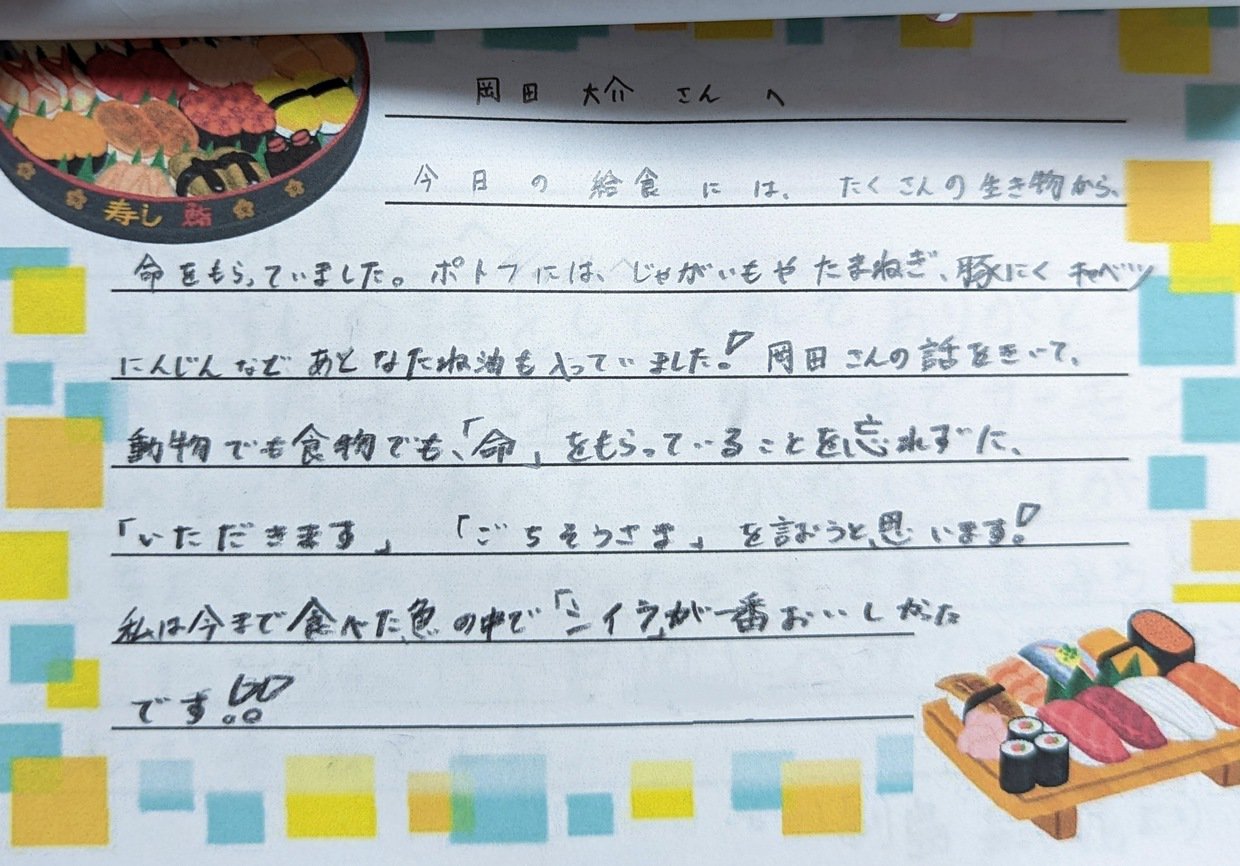 寿し 鮨
岡田 大介 さん へ
今日の 給食 には、たくさんの生き物から、
命をもらっていました。ポトフには、じゃがいもや たまねぎ、豚にく キャベツ
にんじん など あと なたね油も入っていました！岡田さんの話をきいて、
動物でも食物でも、「命」をもらっていることを忘れずに、
「いただきます」「ごちそうさま」を言おうと、思います！
私は今まで食べた魚の中で「シイラ」が一番おいしかった
です！！